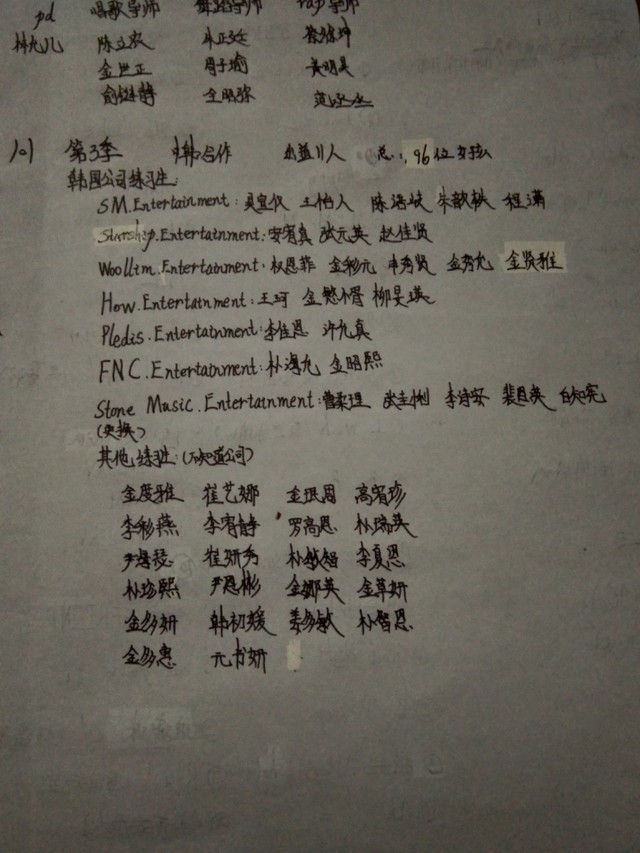 pd 唱歌导师 舞蹈导师 rap导师
林允儿 陈立农 朱正廷 蔡徐坤
金世正 周子瑜 黄明昊
俞璱静 金明弥 范丞丞
101 第3季 中韩合作 出道11人 总:96位女孩
韩国公司练习生
SM.Entertainment:吴宣仪 王怡人 陈语岐 朱歆轶 程潇
Starship.Entertainment:安宥真 张元英 赵佳贤
Woollim.Entertainment:权恩菲 金彩元 申秀贤 金秀允 金贤雅
How.Entertainment:王珂 金愍不胥 柳旻瑛
Pledis.Entertainment:李佳恩 许允真
FNC.Entertainment:朴海允 金昭熙
Stone Music.Entertainment:曹柔理 张圭悧 李诗安 裴恩英 白知宪
(更换)
其他练习生:(不知道公司)
金度雅 崔艺娜 金珉周 高宥珍
李彩燕 李宥静 罗高恩 朴瑞英
尹海琵 崔妍秀 朴敏智 李夏恩
朴珍熙 尹恩彬 金娜英 金草妍
金多妍 韩初媛 姜多敏 朴智恩
金多惠 元书妍